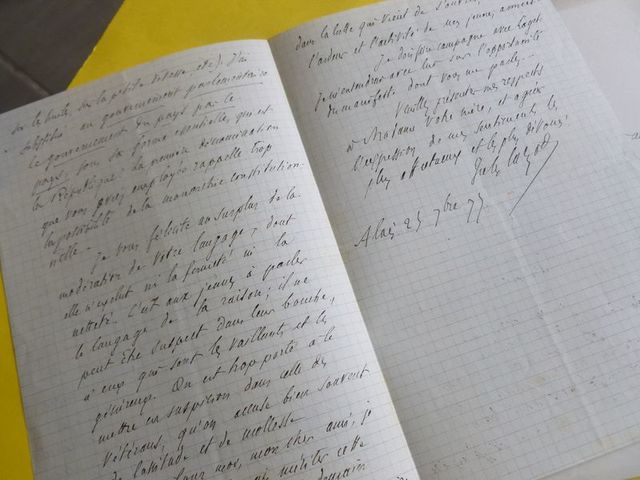 sur le           sur la petite               etc). J'ai
substitué au gouvernement parlementaire
le gouvernement du pays par le
pays, sous sa forme essentielle, qui est
la République : la première dénomination
que vous avez employée rappelle trop
la possibilité de la monarchie constitution-
nelle.
Je vous félicite au surplus de la
modération de votre langage, dont
elle n'exclut ni la fermeté ni la
netteté. C'est aux jeunes à parler
le langage de la raison ; il ne
peut être suspect dans leur bouche,
à eux qui sont les vaillants et les
généreux. On est trop porté à le
mettre en suspicion dans celle des
vétérans, qu'on accuse bien souvent
de lassitude et de mollesse
pour moi, mon cher ami, je
mériter cette
demain
dans la lutte qui vient de s'ouvrir,
l'ardeur et l'activité de mes jeunes années
Je                campagne avec
Je m'entendrai avec lui sur l'opportunité
du manifeste dont vous me parlez.
Veuillez présenter mes respects
à Madame votre mère, et agréer
l'expression de mes sentiments les
plus affectueux et les plus dévoués.
Alais 25 7bre 77